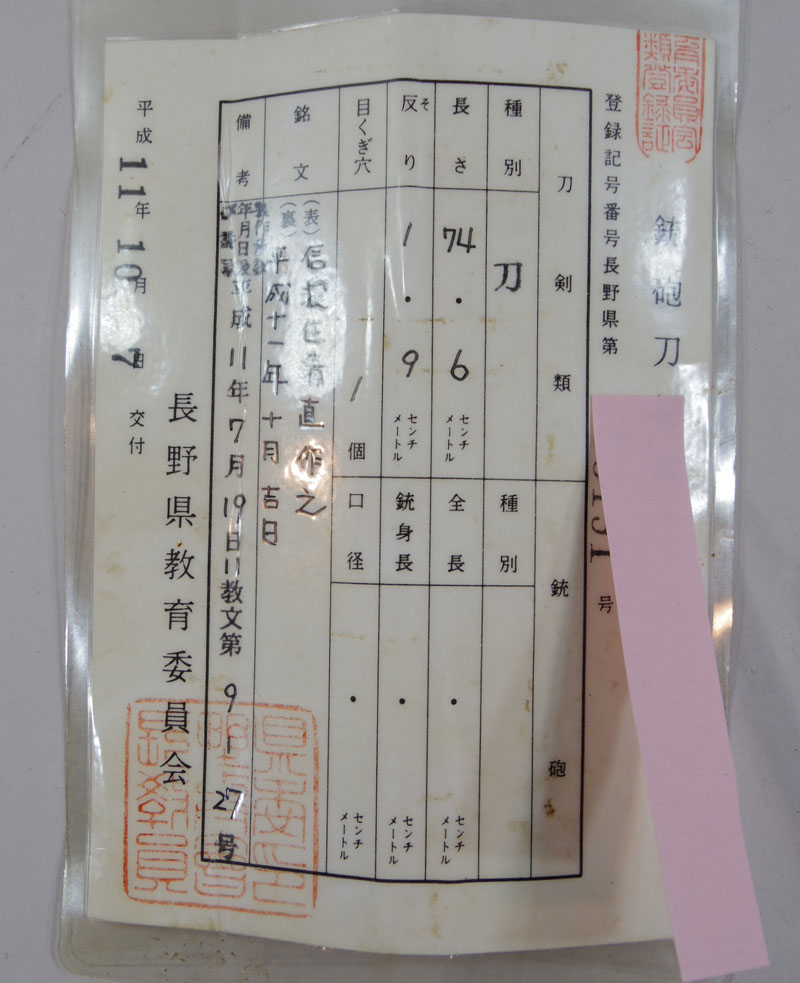 銃砲刀
登録記号番号長野県第
号
刀剣類
銃砲
種別
刀
種別
長さ
74.6
センチメートル
全長
・
センチメートル
反り
そ
1.9
センチメートル
銃身長
・
センチメートル
目くぎ穴
1個
口径
・
センチメートル
銘文
(表)信
住
直作之
(裏)平成十一年十月吉日
備考
年月日
平成11年7月19日11教文第9-27号
平成11年10月7日交付
長野県教育委員会